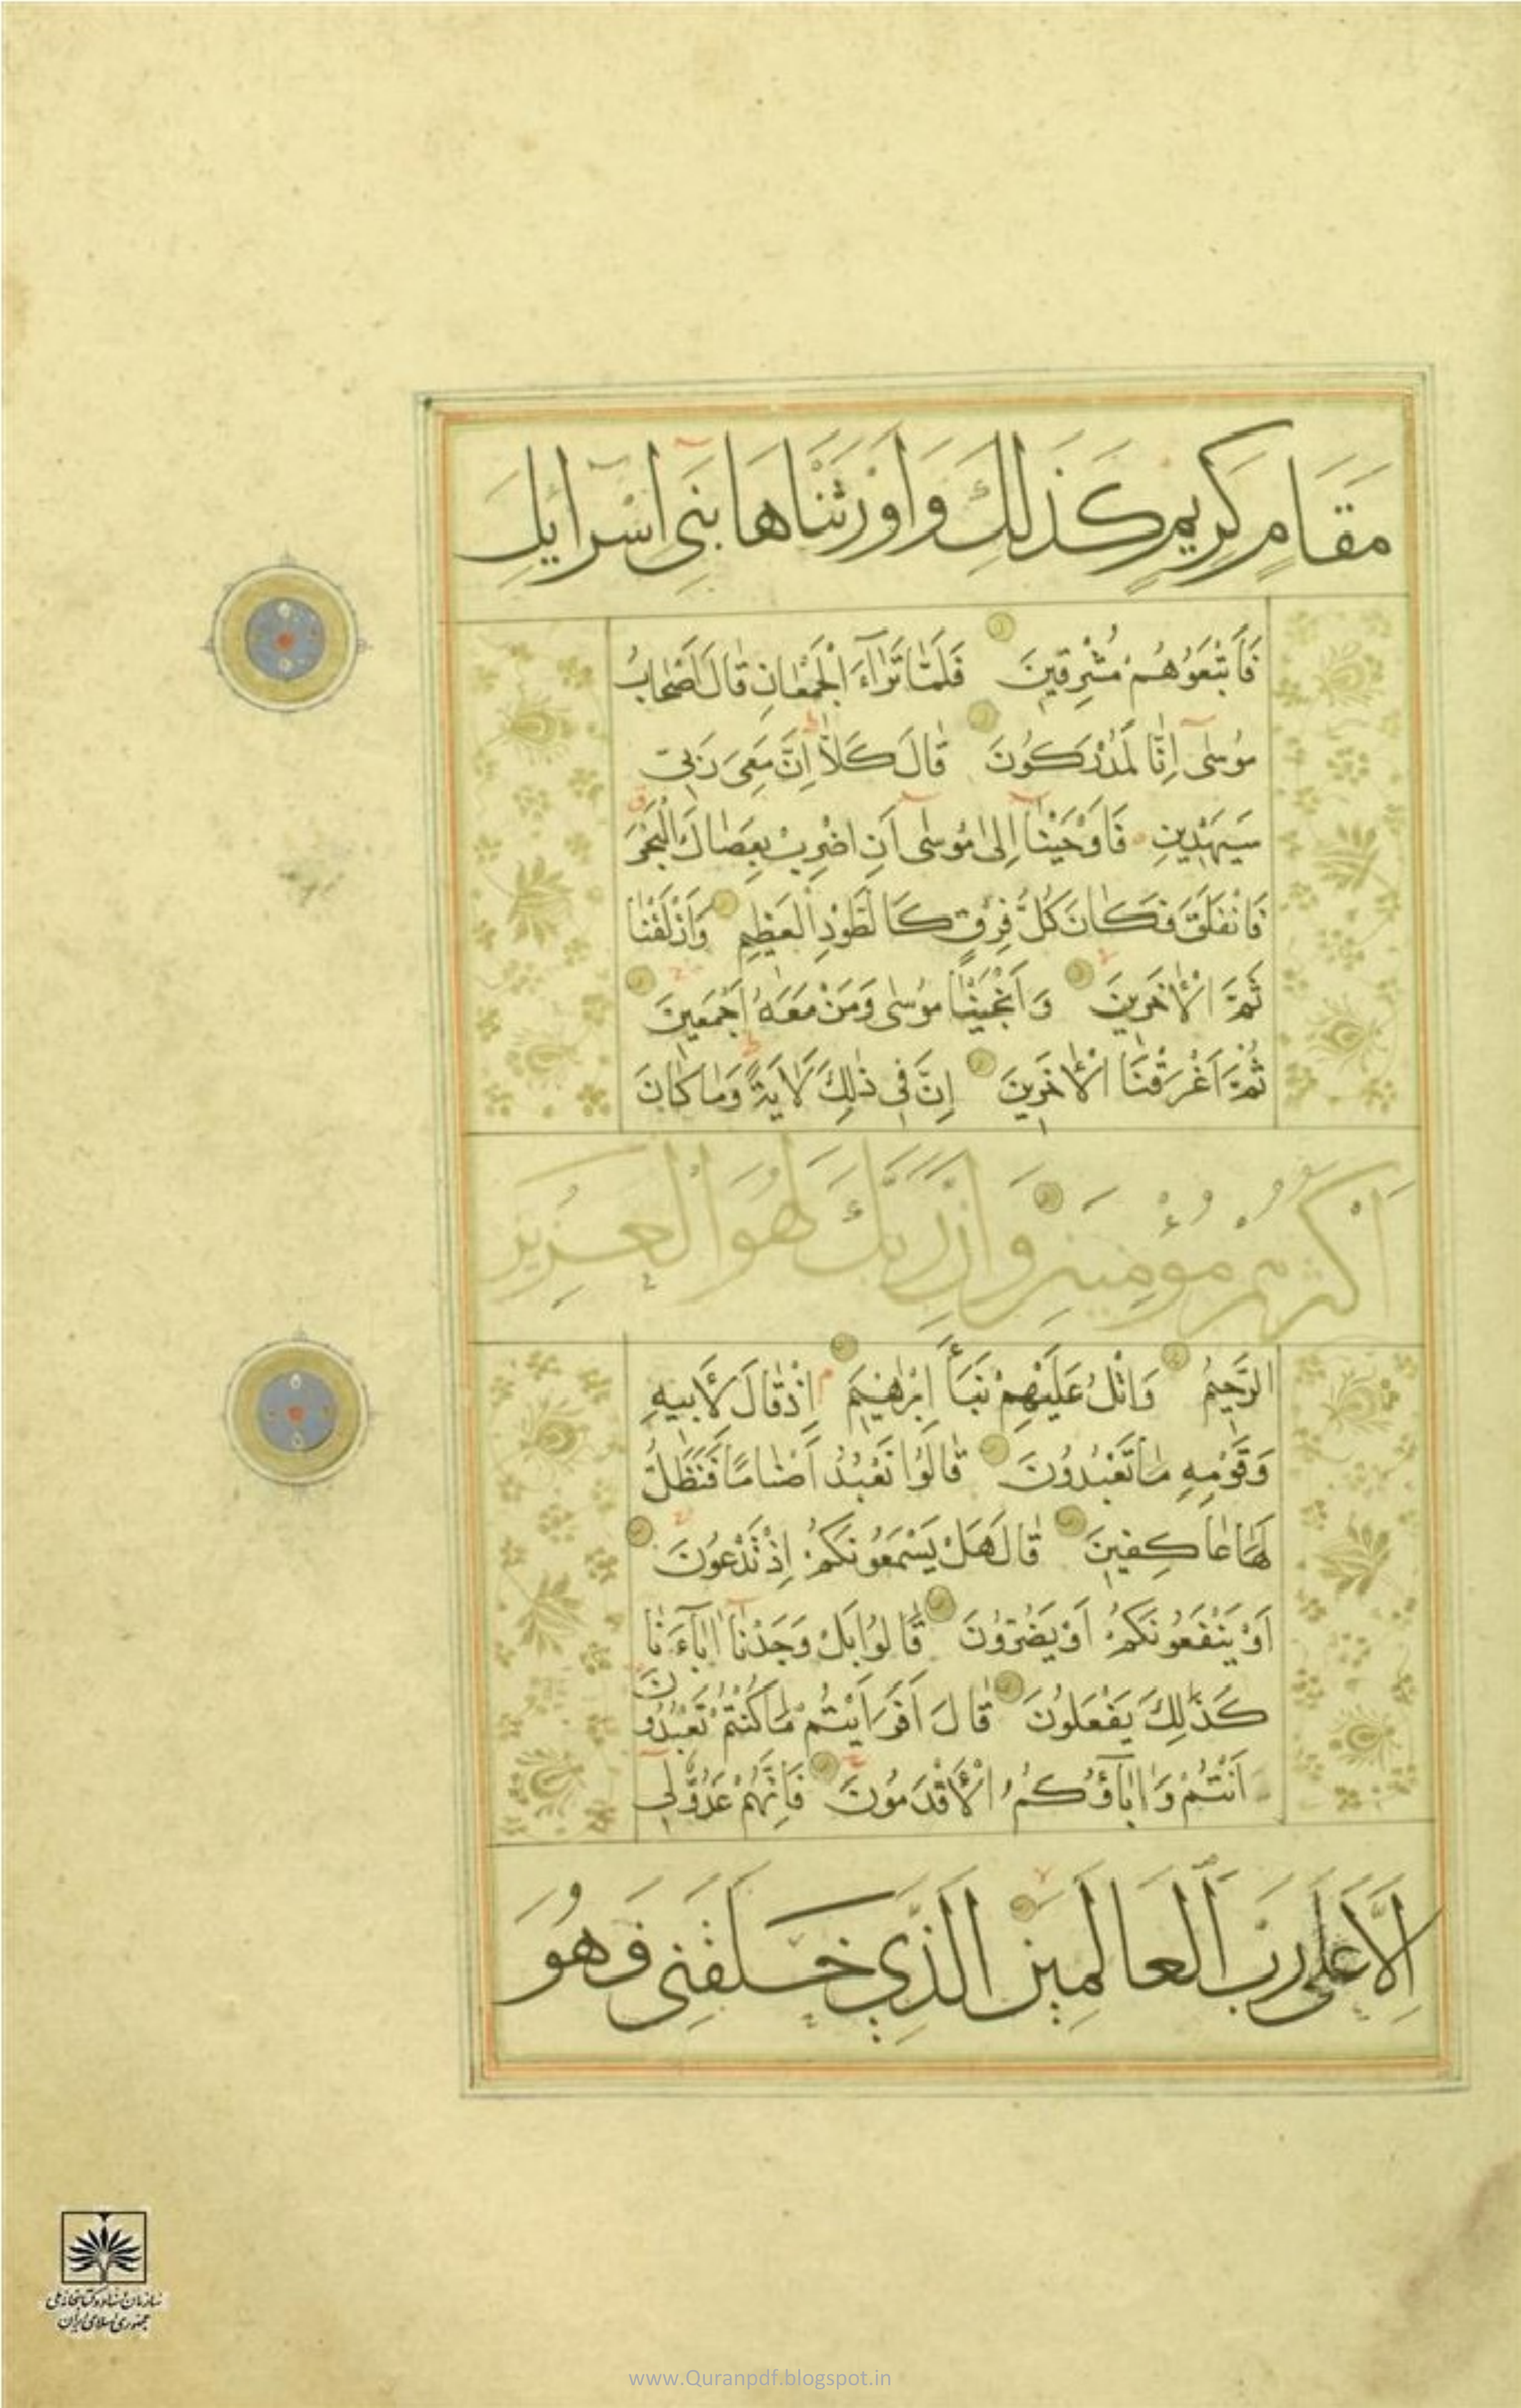 مَقَامٍ كَرِيمٍ كَذَلِكَ وَاَوْرَثْنَاهَا بَنِي اسْرَآئِيلَ
فَاَتْبَعُوهُمْ مُشْرِقِينَ فَلَمَّا تَرَآءَ الْجَمْعَانِ قَالَ اَصْحَابُ
مُوسٰى اِنَّا لَمُدْرَكُونَ قَالَ كَلَّا اِنَّ مَعِيَ رَبِّي
سَيَهْدِينِ فَاَوْحَيْنَا اِلٰى مُوسٰى اَنِ اضْرِبْ بِعَصَاكَ الْبَحْرَ
فَانْفَلَقَ فَكَانَ كُلُّ فِرْقٍ كَالطَّوْدِ الْعَظِيمِ وَاَزْلَفْنَا
ثَمَّ الْاٰخَرِينَ وَاَنْجَيْنَا مُوسٰى وَمَنْ مَعَهُ اَجْمَعِينَ
ثُمَّ اَغْرَقْنَا الْاٰخَرِينَ اِنَّ فِي ذٰلِكَ لَاٰيَةً وَمَا كَانَ
اَكْثَرُهُمْ مُؤْمِنِينَ وَاِنَّ رَبَّكَ لَهُوَ الْعَزِيزُ
الرَّحِيمُ وَاتْلُ عَلَيْهِمْ نَبَأَ اِبْرٰهِيمَ اِذْ قَالَ لِأَبِيهِ
وَقَوْمِهِ مَا تَعْبُدُونَ قَالُوا نَعْبُدُ اَصْنَامًا فَنَظَلُّ
لَهَا عَاكِفِينَ قَالَ هَلْ يَسْمَعُونَكُمْ اِذْ تَدْعُونَ
اَوْ يَنْفَعُونَكُمْ اَوْ يَضُرُّونَ قَالُوا بَلْ وَجَدْنَا اٰبَآءَنَا
كَذٰلِكَ يَفْعَلُونَ قَالَ اَفَرَاَيْتُمْ مَا كُنْتُمْ تَعْبُدُونَ
اَنْتُمْ وَاٰبَآؤُكُمُ الْأَقْدَمُونَ فَاِنَّهُمْ عَدُوٌّ لِي
اِلَّا رَبَّ الْعَالَمِينَ الَّذِي خَلَقَنِي فَهُوَ
سازمان اسناد و کتابخانه ملی
جمهوری اسلامی ایران
www.Quranpdf.blogspot.in